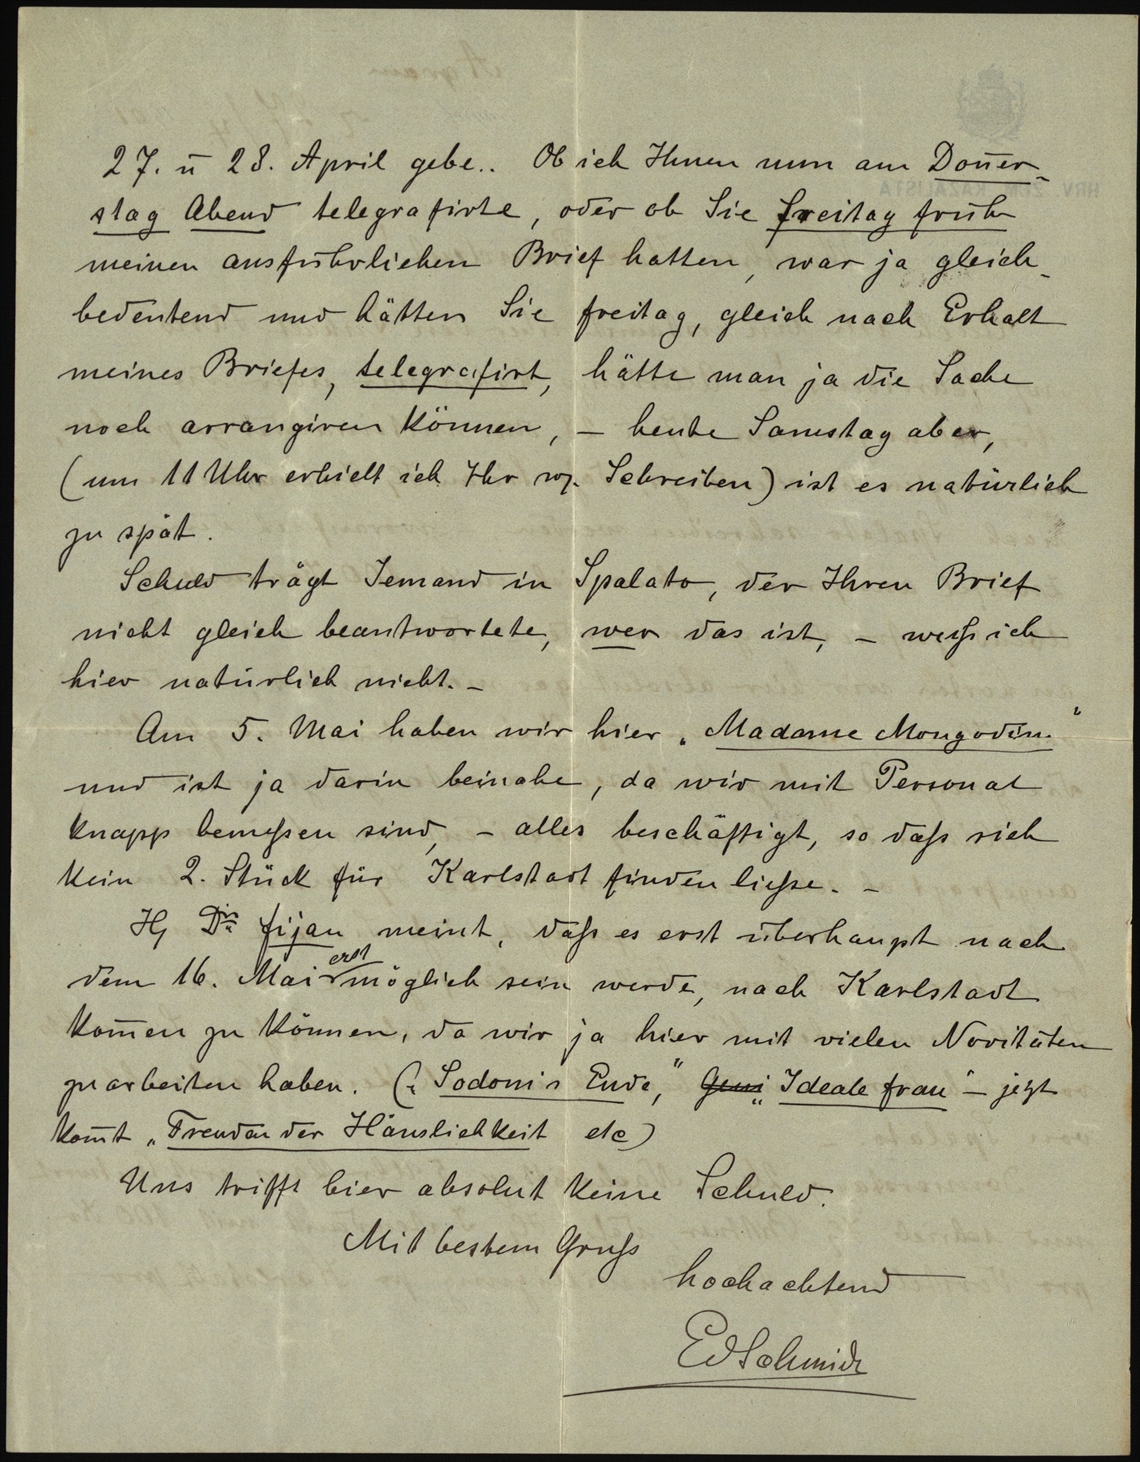 27. ū 28. April gebe.. Ob ich Ihnen nun am Doñer-
stag Abend telegrafirte, oder ob Sie Freitag früh
meinen ausführlichen Brief hatten, war ja gleich-
bedeutend und hätten Sie Freitag, gleich nach Erhalt
meines Briefes, telegrafirt, hätte man ja die Sache
noch arrangiren können, – heute Samstag aber,
(um 11 Uhr erhielt ich Ihr Schreiben) ist es natürlich
zu spät.
Schuld trägt Jemand in Spalato, der Ihren Brief
nicht gleich beantwortete, wer das ist, – weiß ich
hier natürlich nicht. –
Am 5. Mai haben wir hier „Madame Mongodin"
und ist ja darin beinahe, da wir mit Personal
knapp bemeßen sind, – alles beschäftigt, so daß sich
kein 2. Stück für Karlstadt finden ließe. –
H, Dir Fijan meint, daß es erst überhaupt nach
dem 16. Mai erst möglich sein werde, nach Karlstadt
kom̄en zu können, da wir ja hier mit vielen Novitäten
zu arbeiten haben. („Sodom's Ende," „Ideale Frau" – jetzt
kom̄t „Freuden der Häuslichkeit etc)
Uns trifft hier absolut keine Schuld.
Mit bestem Gruß
hochachtend
EdSchmidt